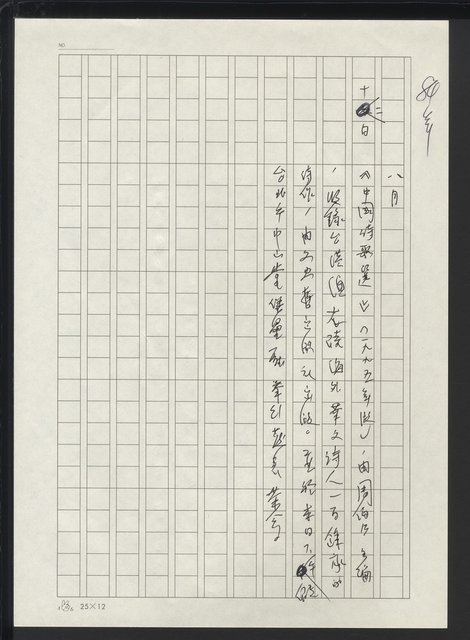 84年
八月
十二日
《中國詩歌選》(一九九五年版),由周伯乃主編
,收錄台港澳大陸海外華文詩人一百餘家的
詩作,由文史哲出版社出版。並於本日下午
台北市中山堂堡壘廳舉行發表茶會
NO.
25×12